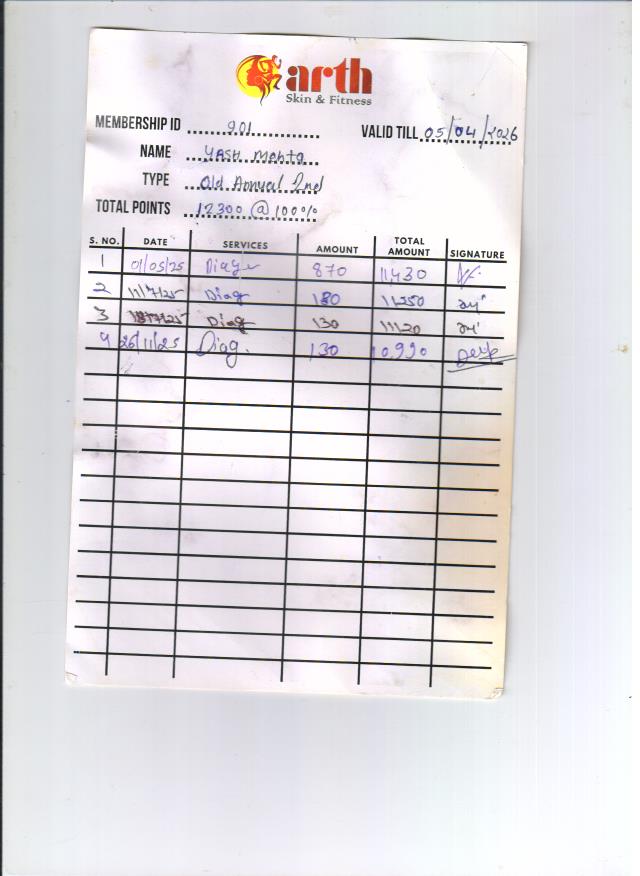 arth
Skin & Fitness
MEMBERSHIP ID 901 VALID TILL 05/04/2026
NAME YASH Mehta
TYPE Old Annual 2nd
TOTAL POINTS 12300 @ 100%
S. NO. DATE SERVICES AMOUNT TOTAL AMOUNT SIGNATURE
1 01/05/25 870 11430
2 11/7/25 Diag 180 11250
3 Diag 130 11120
4 26/11/25 Diag. 130 10,990